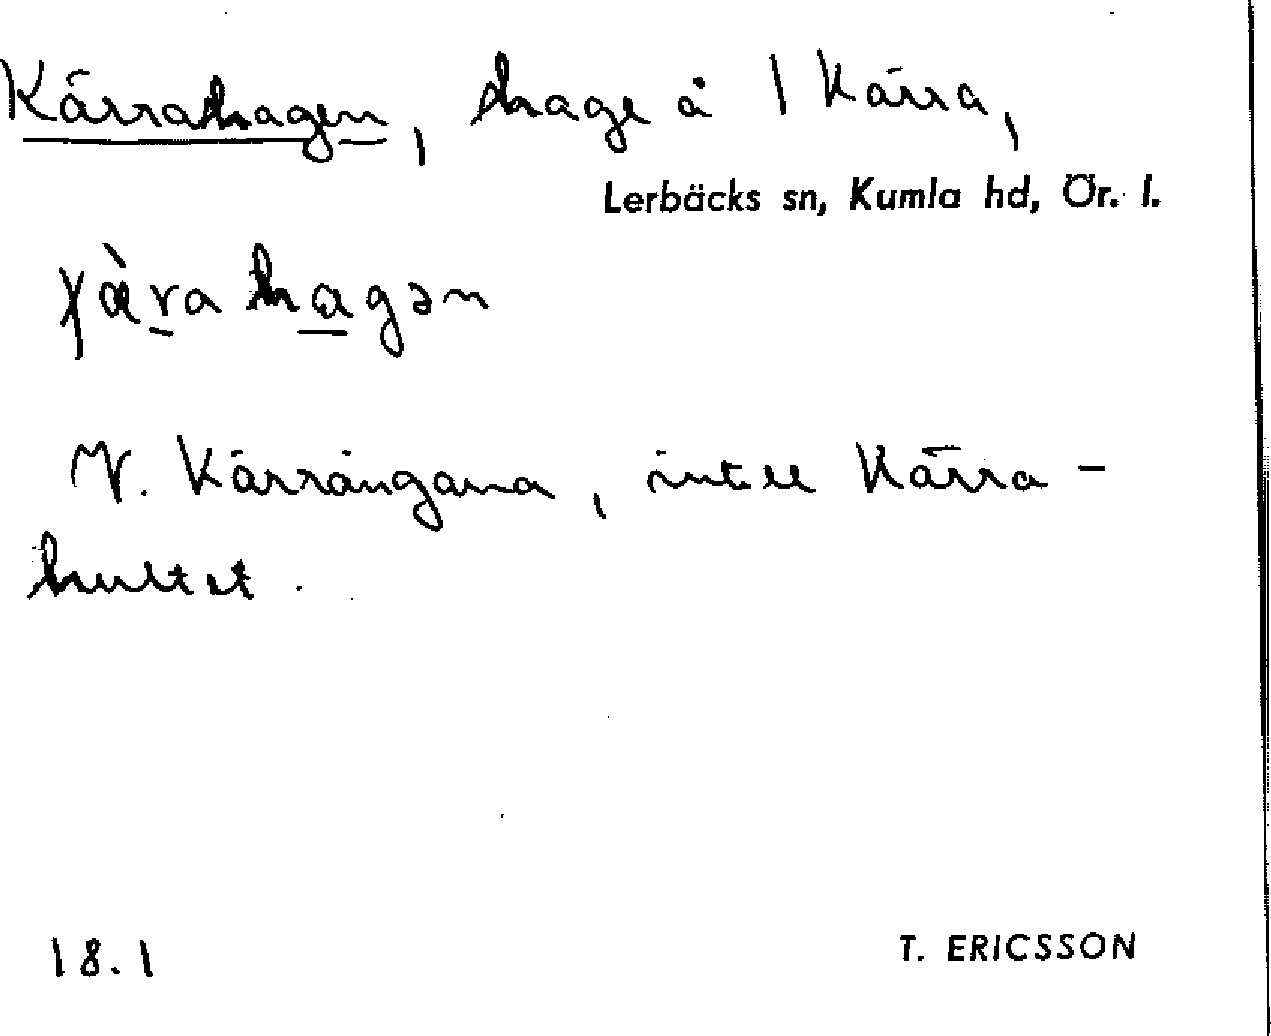 Kärrahagen, hage å 1 Kärra,
Lerbäcks sn, Kumla hd, Ör. l.
hagən
N. Kärrängarna, intill Kärra-
hultet.
18.1
T. ERICSSON